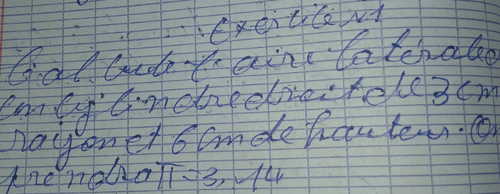 Exercice N1
Calcule l'aire latérale
un cylindre droit de 3 cm
rayon et 6 cm de hauteur. On
prendra π = 3,14